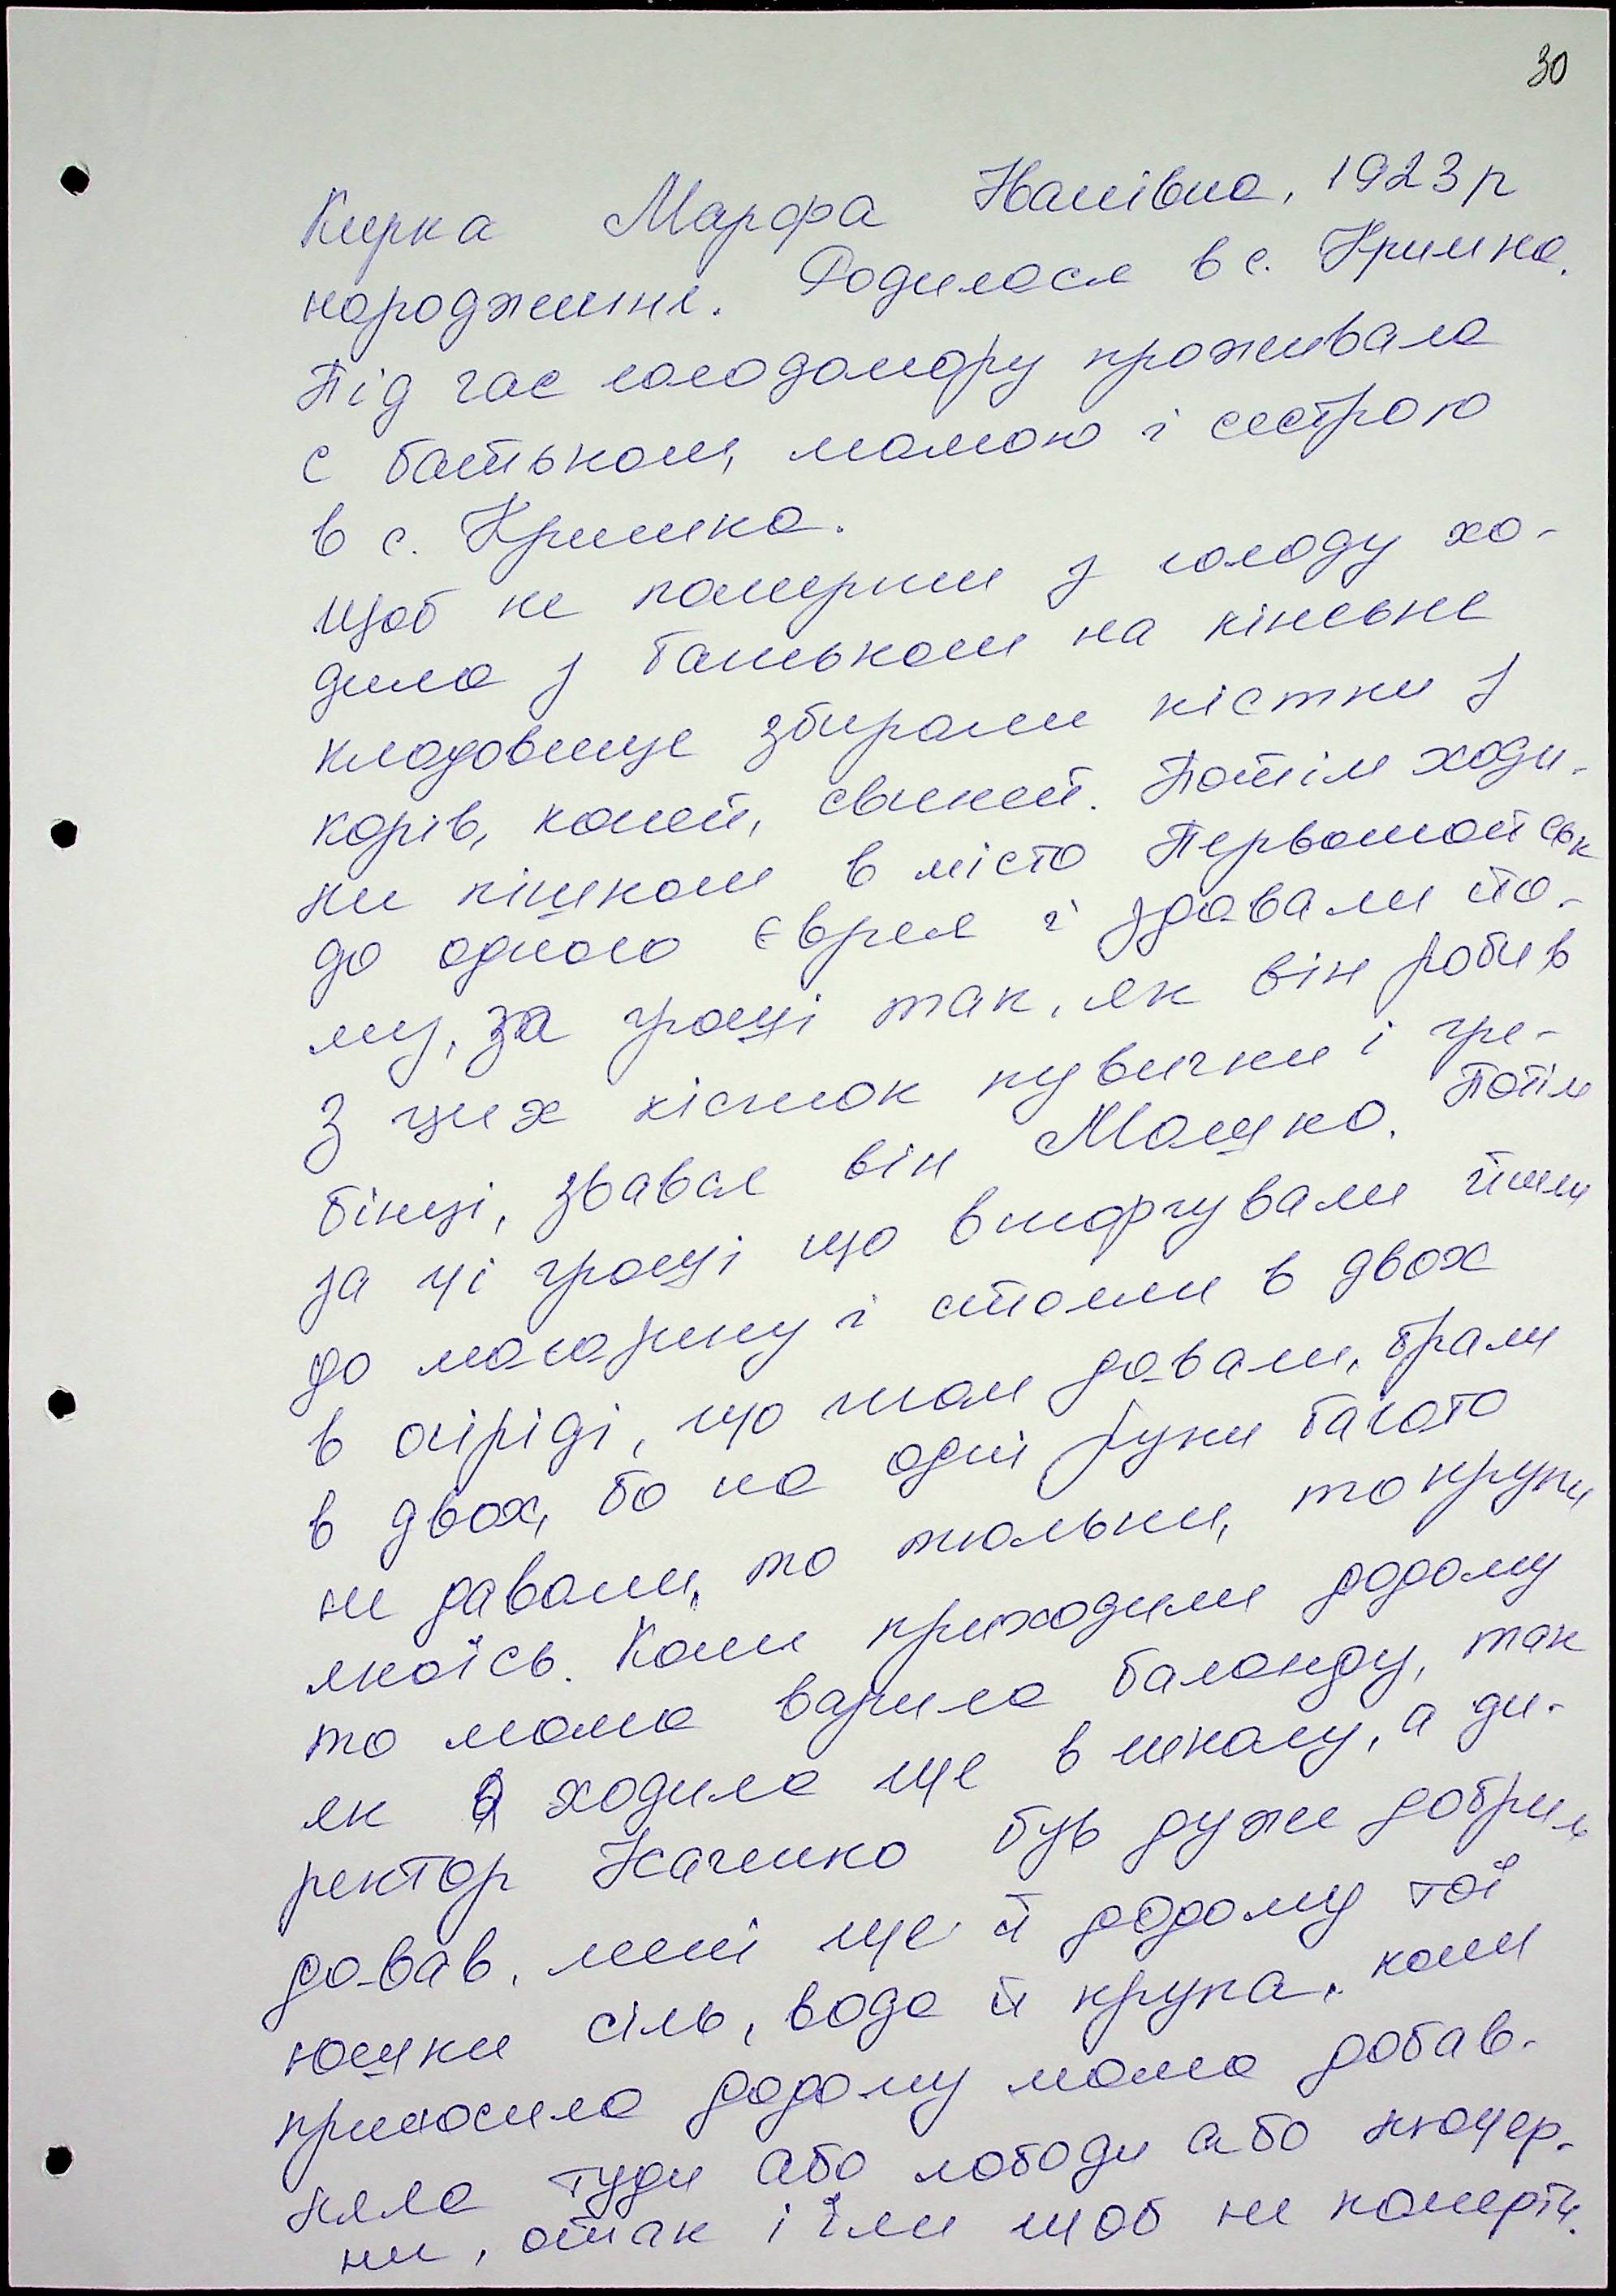 30
Кирка Марфа Іванівна, 1923 р
народження. Родилася в с. Кримка.
Під час голодомору проживала
с батьком, мамою і сестрою
в с. Кримка.
Щоб не померти з голоду хо-
дила з батьком на кінське
кладовище збирали кістки з
корів, коней, свиней. Потім ходи-
ли пішком в місто Первомайськ
до одного єврея і здавали йо-
му, за гроші так, як він робив
З цих кісток гувички і гре-
бінці, звався він Мошко. Потім
за ці гроші що вторгували йшли
до магазину і стояли в двох
в очіріді, що там давали, брали
в двох, бо на одні руки багато
не давали, то тюльки, то крупи
якоїсь. Коли приходили додому
то мама варила баланду, так
як я ходила ще в школу, а ди-
ректор Ткаченко був дуже добрим
давав, мені ще й додому тої
юшки сіль, вода й крупа, коли
приносила додому мама добав-
ляла туди або лободи або люцер-
ни, отак і їли щоб не померти.